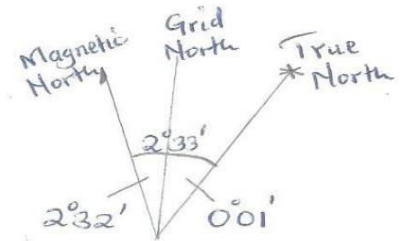 Magnetic
North
Grid
North
True
North
2°33'
2°32'
0°01'